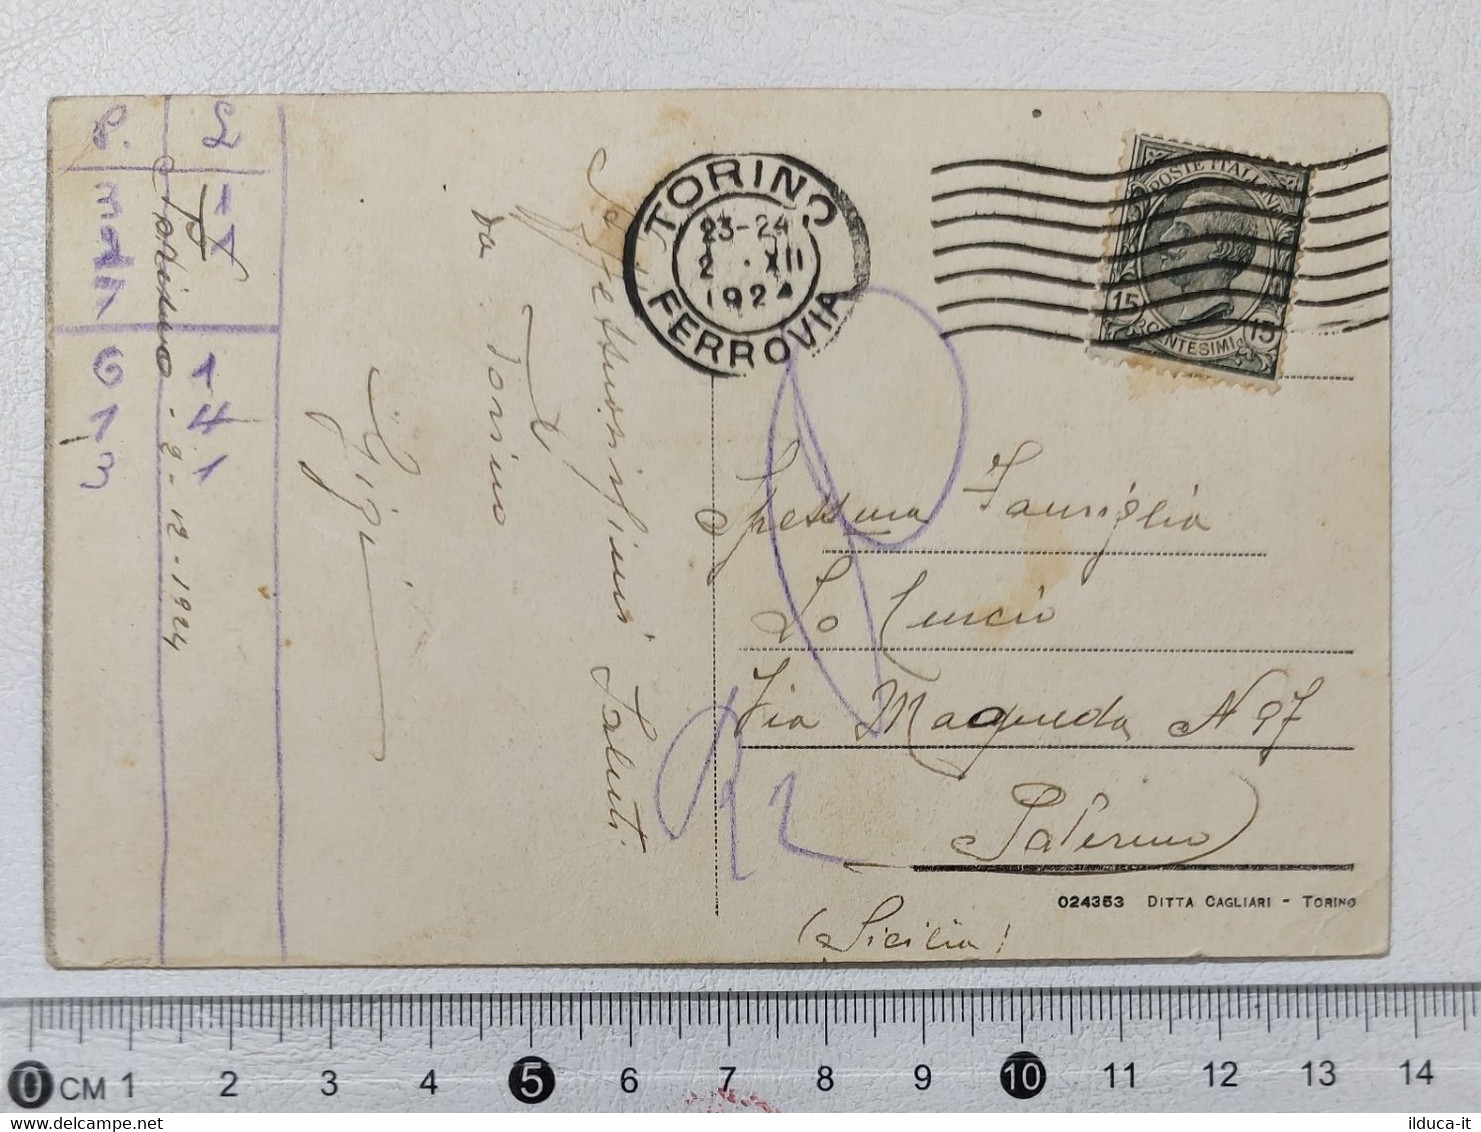 P. L
3 1
2
6 1
1 4
3 1
Torino - 2 - 12 - 1924
Affettuosissimi Saluti
da Torino
Gigi
TORINO
23-24
2 · XII
1924
FERROVIA
POSTE ITALIANE
15 CENTESIMI 15
Famiglia
Lo Curcio
Via Maqueda N 97
Palermo
(Sicilia)
024353 DITTA CAGLIARI - TORINO
0 CM 1 2 3 4 5 6 7 8 9 10 11 12 13 14
ilduca-it